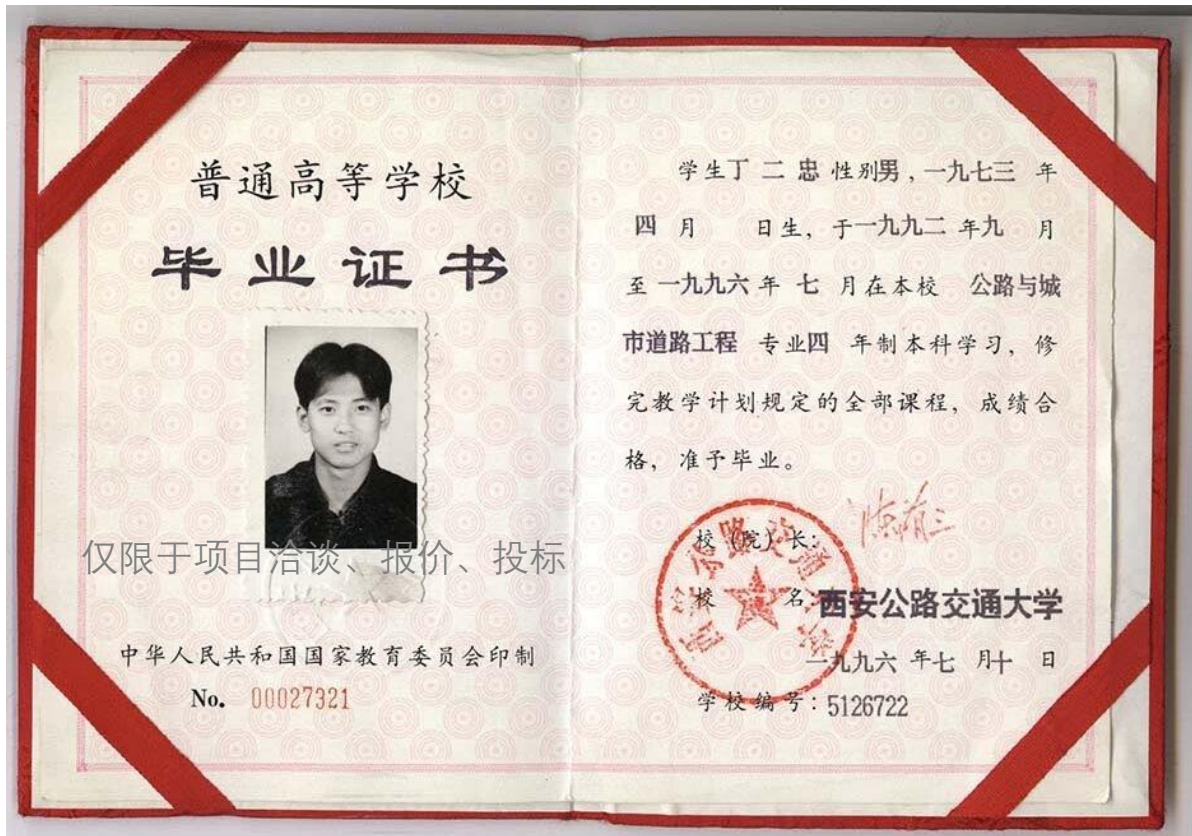 普通高等学校
毕业证书
仅限于项目洽谈、报价、投标
中华人民共和国国家教育委员会印制
No. 00027321
学生丁二忠性别男，一九七三年
四月 日生，于一九九二年九月
至一九九六年七月在本校 公路与城
市道路工程 专业四年制本科学习，修
完教学计划规定的全部课程，成绩合
格，准予毕业。
校（院）长：
校 名：西安公路交通大学
一九九六年七月十日
学校编号：5126722